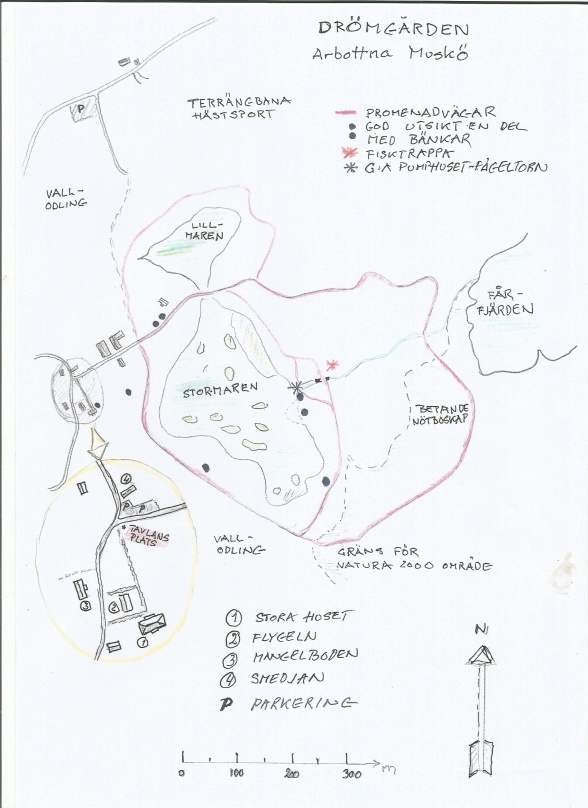 DRÖMGÅRDEN
Arbottna Muskö
P
TERRÄNGBANA
HÄSTSPORT
PROMENADVÄGAR
GOD UTSIKT EN DEL
MED BÄNKAR
FISKTRAPPA
G:A PUMPHUSET-FÅGELTORN
VALL-
ODLING
LILL-
MAREN
FÅR-
FJÄRDEN
STORMAREN
BETANDE
NÖTBOSKAP
4
P
P
TAVLANS
PLATS
3
2
1
VALL-
ODLING
GRÄNS FÖR
NATURA 2000 OMRÅDE
1 STORA HUSET
2 FLYGELN
3 MANGELBODEN
4 SMEDJAN
P PARKERING
N
0 100 200 300 m